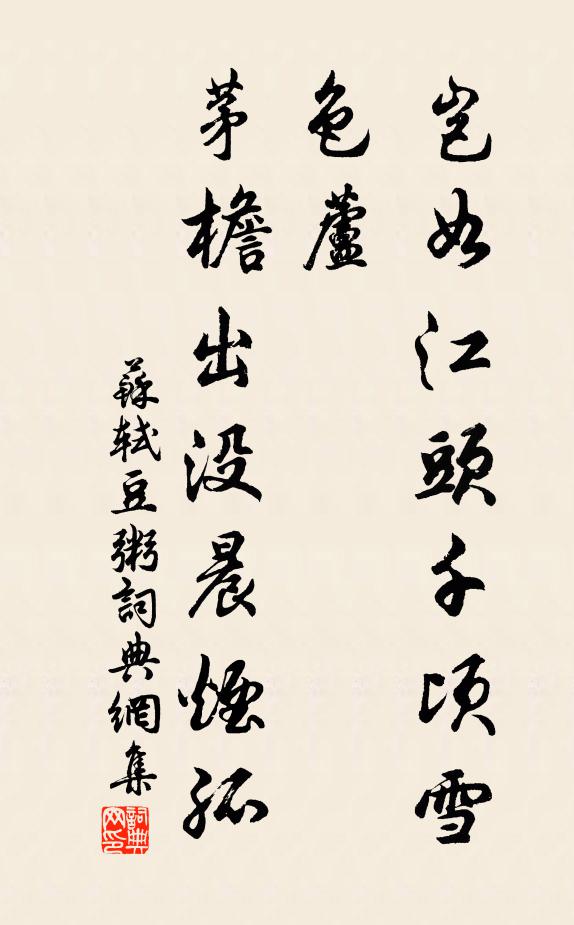 豈如江頭千頃雪
色蘆
茅檐出没晨煙孤
蘇軾豆粥詞典網集
詞典
网印